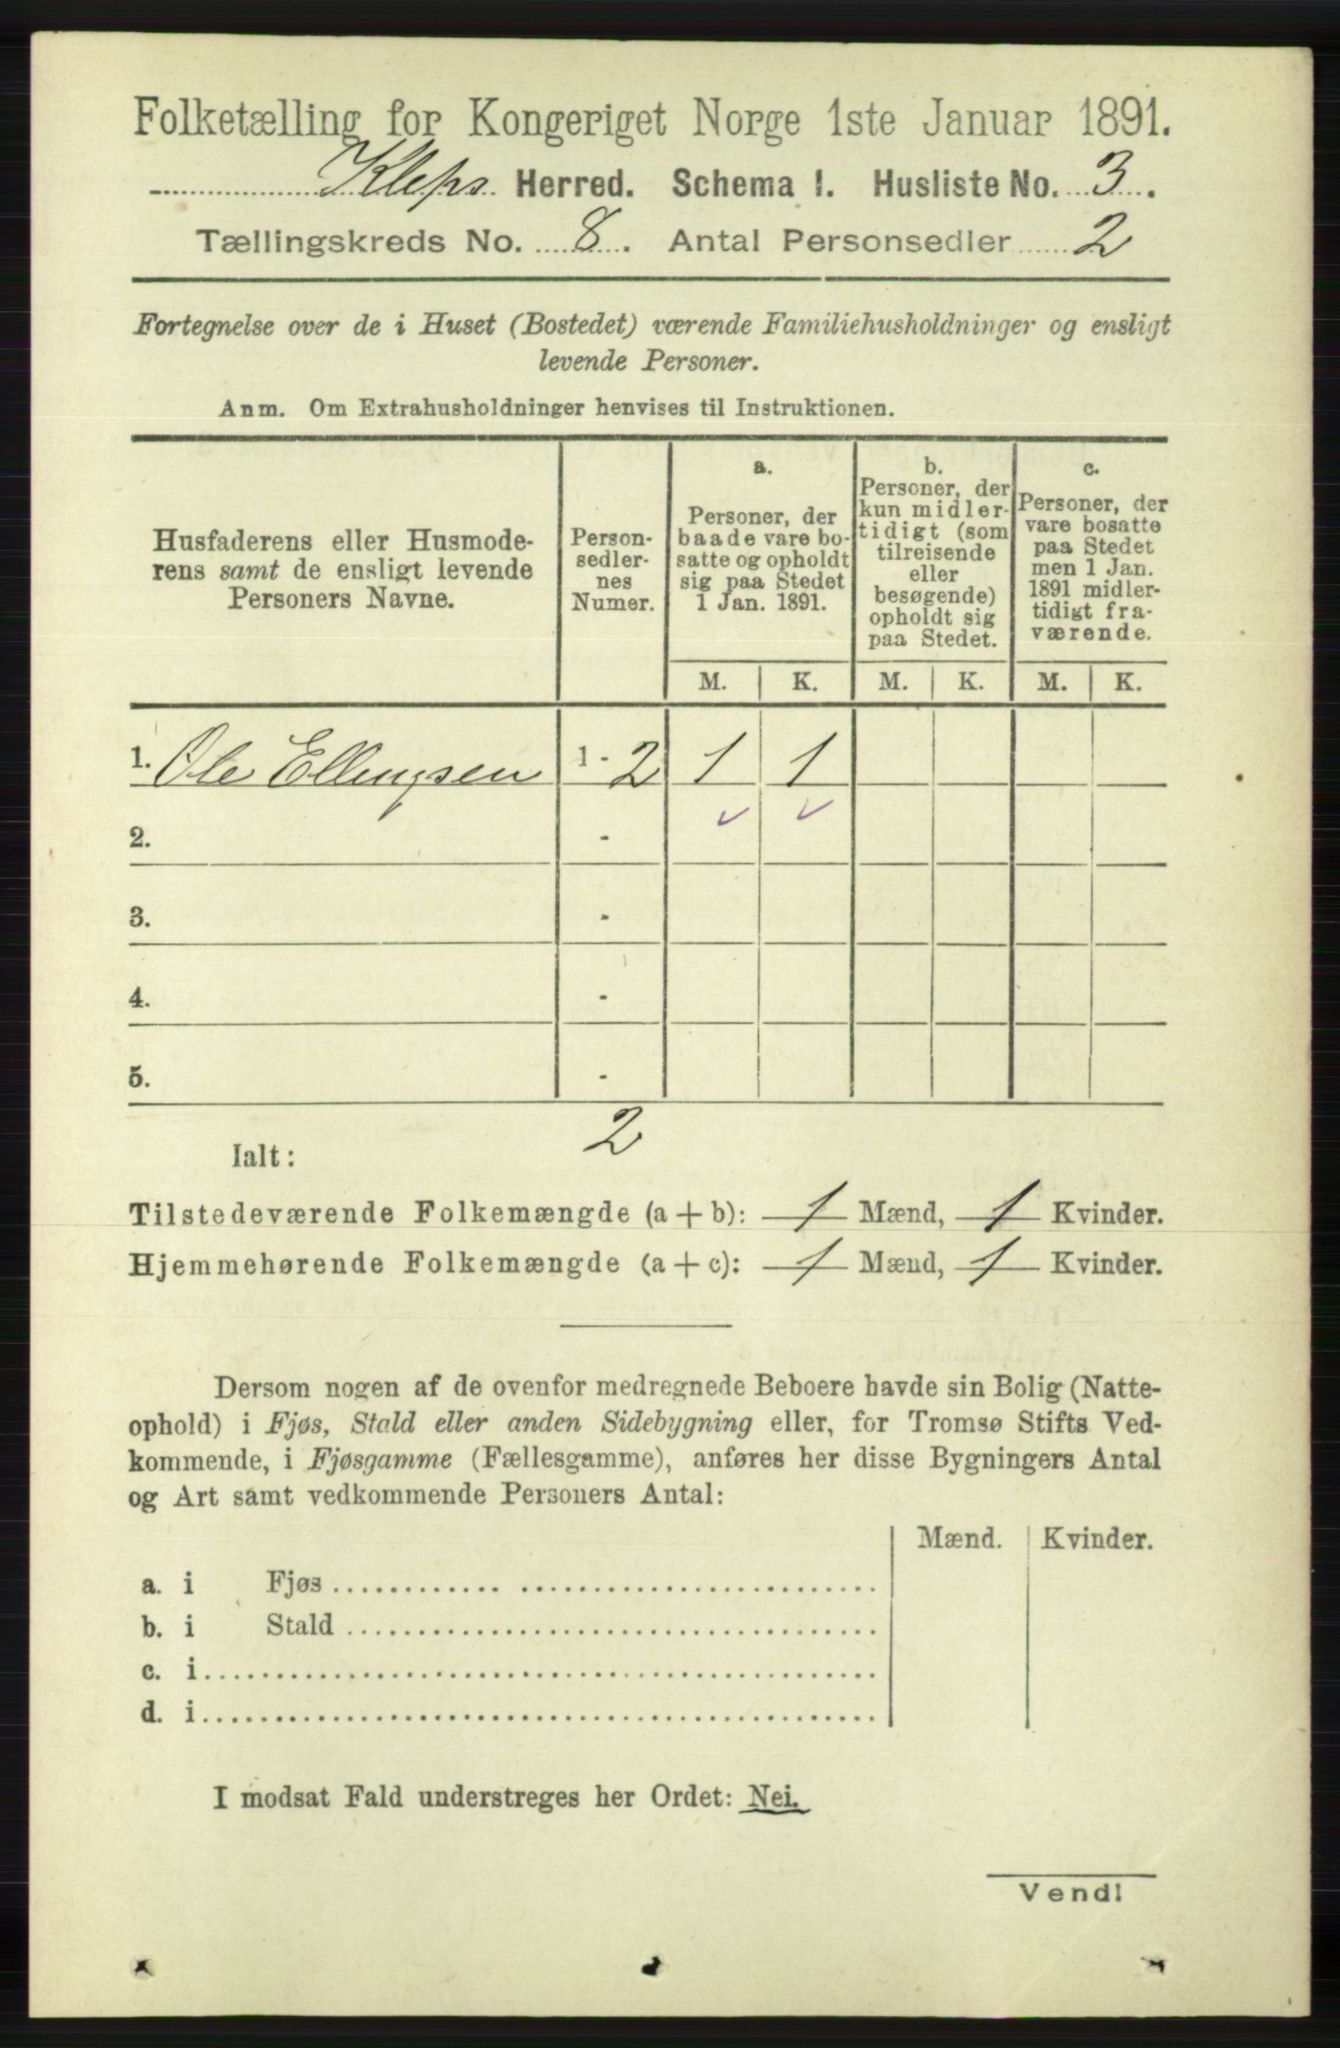 Folketælling for Kongeriget Norge 1ste Januar 1891.
Klepps Herred. Schema I. Husliste No. 3.
Tællingskreds No. 8. Antal Personsedler 2
Fortegnelse over de i Huset (Bostedet) værende Familiehusholdninger og ensligt
levende Personer.
Anm. Om Extrahusholdninger henvises til Instruktionen.
Husfaderens eller Husmode-
rens samt de ensligt levende
Personers Navne.
Person-
sedler-
nes
Numer.
a.
Personer, der
baade vare bo-
satte og opholdt
sig paa Stedet
1 Jan. 1891.
b.
Personer, der
kun midler-
tidigt (som
tilreisende
eller
besøgende)
opholdt sig
paa Stedet.
c.
Personer, der
vare bosatte
paa Stedet
men 1 Jan.
1891 midler-
tidigt fra-
værende.
M. K. M. K. M. K.
1. Ole Ellingsen 1 - 2 1 1
2. -
3. -
4. -
5. -
Ialt: 2
Tilstedeværende Folkemængde (a + b): 1 Mænd, 1 Kvinder.
Hjemmehørende Folkemængde (a + c): 1 Mænd, 1 Kvinder.
Dersom nogen af de ovenfor medregnede Beboere havde sin Bolig (Natte-
ophold) i Fjøs, Stald eller anden Sidebygning eller, for Tromsø Stifts Ved-
kommende, i Fjøsgamme (Fællesgamme), anføres her disse Bygningers Antal
og Art samt vedkommende Personers Antal:
Mænd. Kvinder.
a. i Fjøs
b. i Stald
c. i
d. i
I modsat Fald understreges her Ordet: Nei.
Vend!